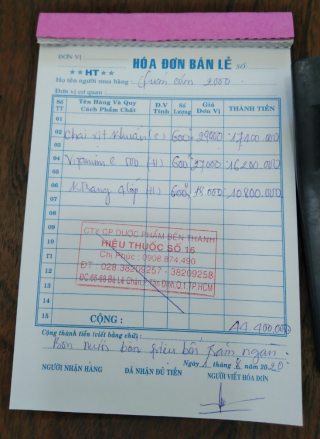 ĐƠN VỊ :
HÓA ĐƠN BÁN LẺ SỐ
★★HT★★
Họ tên người mua hàng : 2000
Đơn vị cơ quan :
SỐ TT Tên Hàng Và Quy Cách Phẩm Chất Đ.V Tính Số Lượng Giá Đơn Vị THÀNH TIỀN
01
02 Chai xịt khuẩn (c) 600 29000 17.400.000
03
04 Vitamin C 500 (H) 600 27000 16.200.000
05
06 K.Trang 4 lớp (H) 600 18.000 10.800.000
07
08
09
10
11
12
13
14
15
CTY CP DƯỢC PHẨM BẾN THÀNH
HIỆU THUỐC SỐ 16
Chị Phúc : 0908.874.490
ĐT - 028.38209257 - 38209258
ĐC: 66-68 Bà Lê Chân - P.Tân Định Q.1.TP.HCM
CỘNG : 44.400.000
Cộng thành tiền (viết bằng chữ) :
Bốn mươi bốn triệu bốn trăm ngàn.
Ngày 8 2020
NGƯỜI NHẬN HÀNG ĐÃ NHẬN ĐỦ TIỀN NGƯỜI VIẾT HÓA ĐƠN